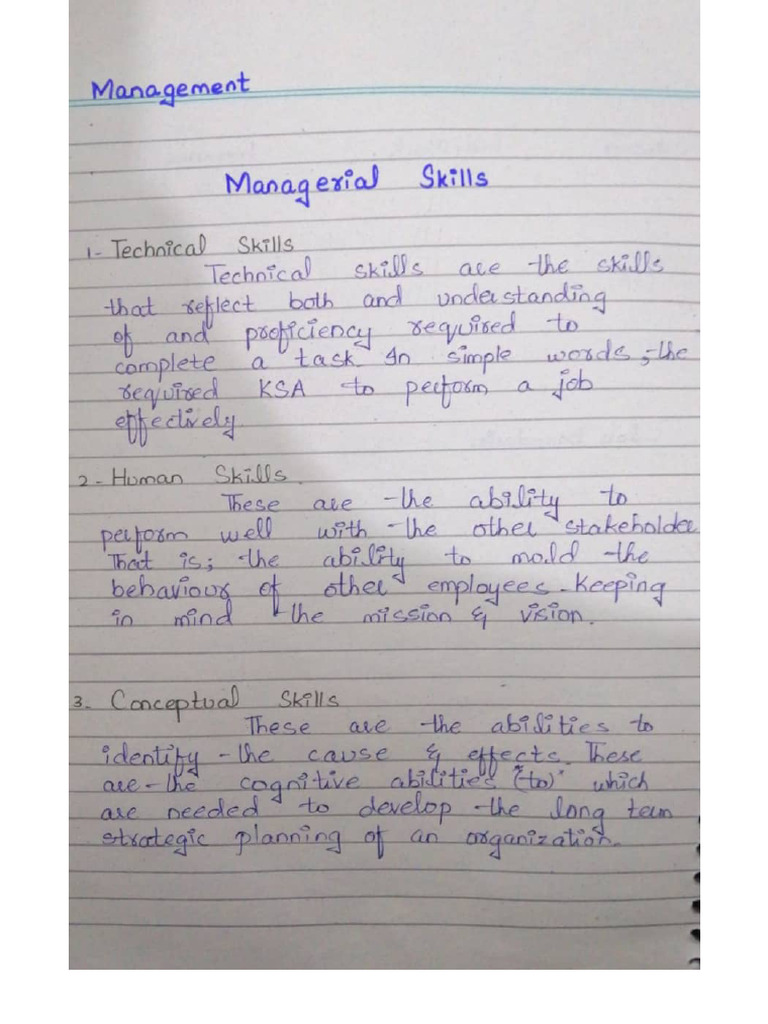 Management
Managerial Skills
1- Technical Skills
Technical skills are the skills
that reflect both and understanding
of and proficiency required to
complete a task. In simple words, the
required KSA to perform a job
effectively.
2- Human Skills.
These are the ability to
perform well with the other stakeholder
That is; the ability to mold the
behaviour of other employees keeping
in mind the mission & vision.
3. Conceptual Skills
These are the abilities to
identify the cause & effects. These
are the cognitive abilities "(to)" which
are needed to develop the long term
strategic planning of an organization.